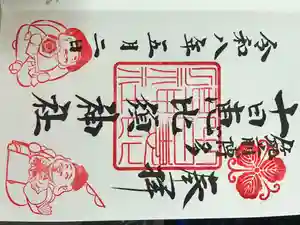 奉拝
十日恵比須神社
令和八年五月二日